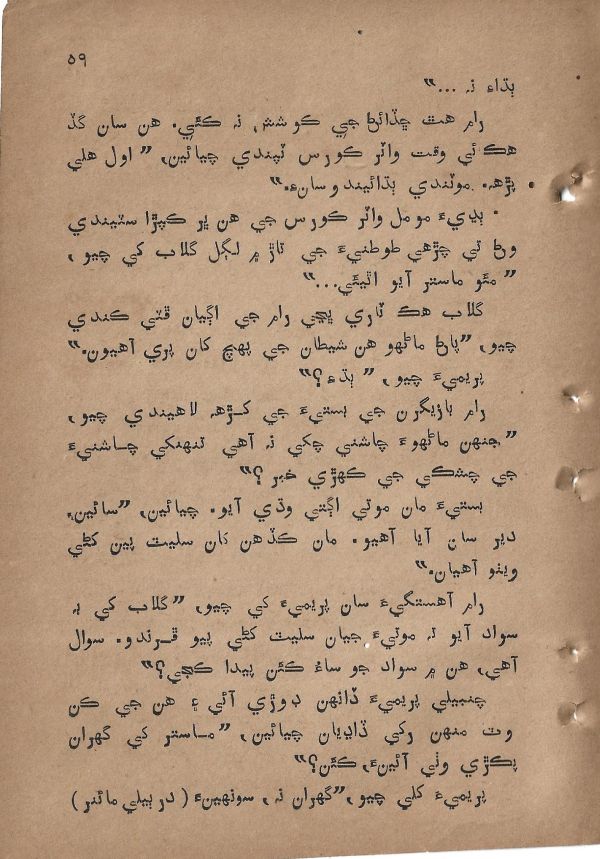 ٥٩
ٻڌاءِ نہ ...“
رام هٿ ڇڏائڻ جي ڪوشش نہ ڪئي. هن سان گڏ
هڪ ئي وقت واٽر ڪورس ٽپندي چيائين، ”اول هلي
پڙهہ. موٽندي ٻڌائيندوسانءِ.“
ٻڍيءَ مومل واٽر ڪورس جي هن ڀر ڪپڙا سٽيندي
وڻ تي چڙهي طوطنيءَ جي تاڙ ۾ لڳل گلاب کي چيو،
”مئو ماستر آيو اٿيئي...“
گلاب هڪ ٽاري ڀڃي رام جي اڳيان ڦٽي ڪندي
چيو، ”پاڻ ماڻهو هن شيطان جي پهچ کان پري آهيون.“
پريميءَ چيو، ”ٻڌءِ؟“
رام بازيگرن جي بستيءَ جي ڪڙهہ لاهيندي چيو،
”جنهن ماڻهوءَ چاشني چکي نہ آهي تنهنکي چاشنيءَ
جي چشڪي جي ڪهڙي خبر؟“
بستيءَ مان موتي اڳتي وڌي آيو. چيائين، ”سائين،
دير سان آيا آهيو. مان ڪڏهن کان سليٽ پين کڻي
ويٺو آهيان.“
رام آهستگيءَ سان پريميءَ کي چيو، ”گلاب کي بہ
سواد آيو تہ موتيءَ جيان سليٽ کڻي پيو ڦرندو. سوال
آهي، هن ۾ سواد جو ساءُ ڪئن پيدا ڪجي؟“
چنبيلي پريميءَ ڏانهن ڊوڙي آئي ۽ هن جي ڪن
وٽ منهن رکي ڏاڍيان چيائين، ”ماستر کي گهران
پڪڙي وٺي آئينءَ، ڪئن؟“
پريميءَ کلي چيو، ”گهران نہ، سونهينءَ (درٻيلي مائنر)